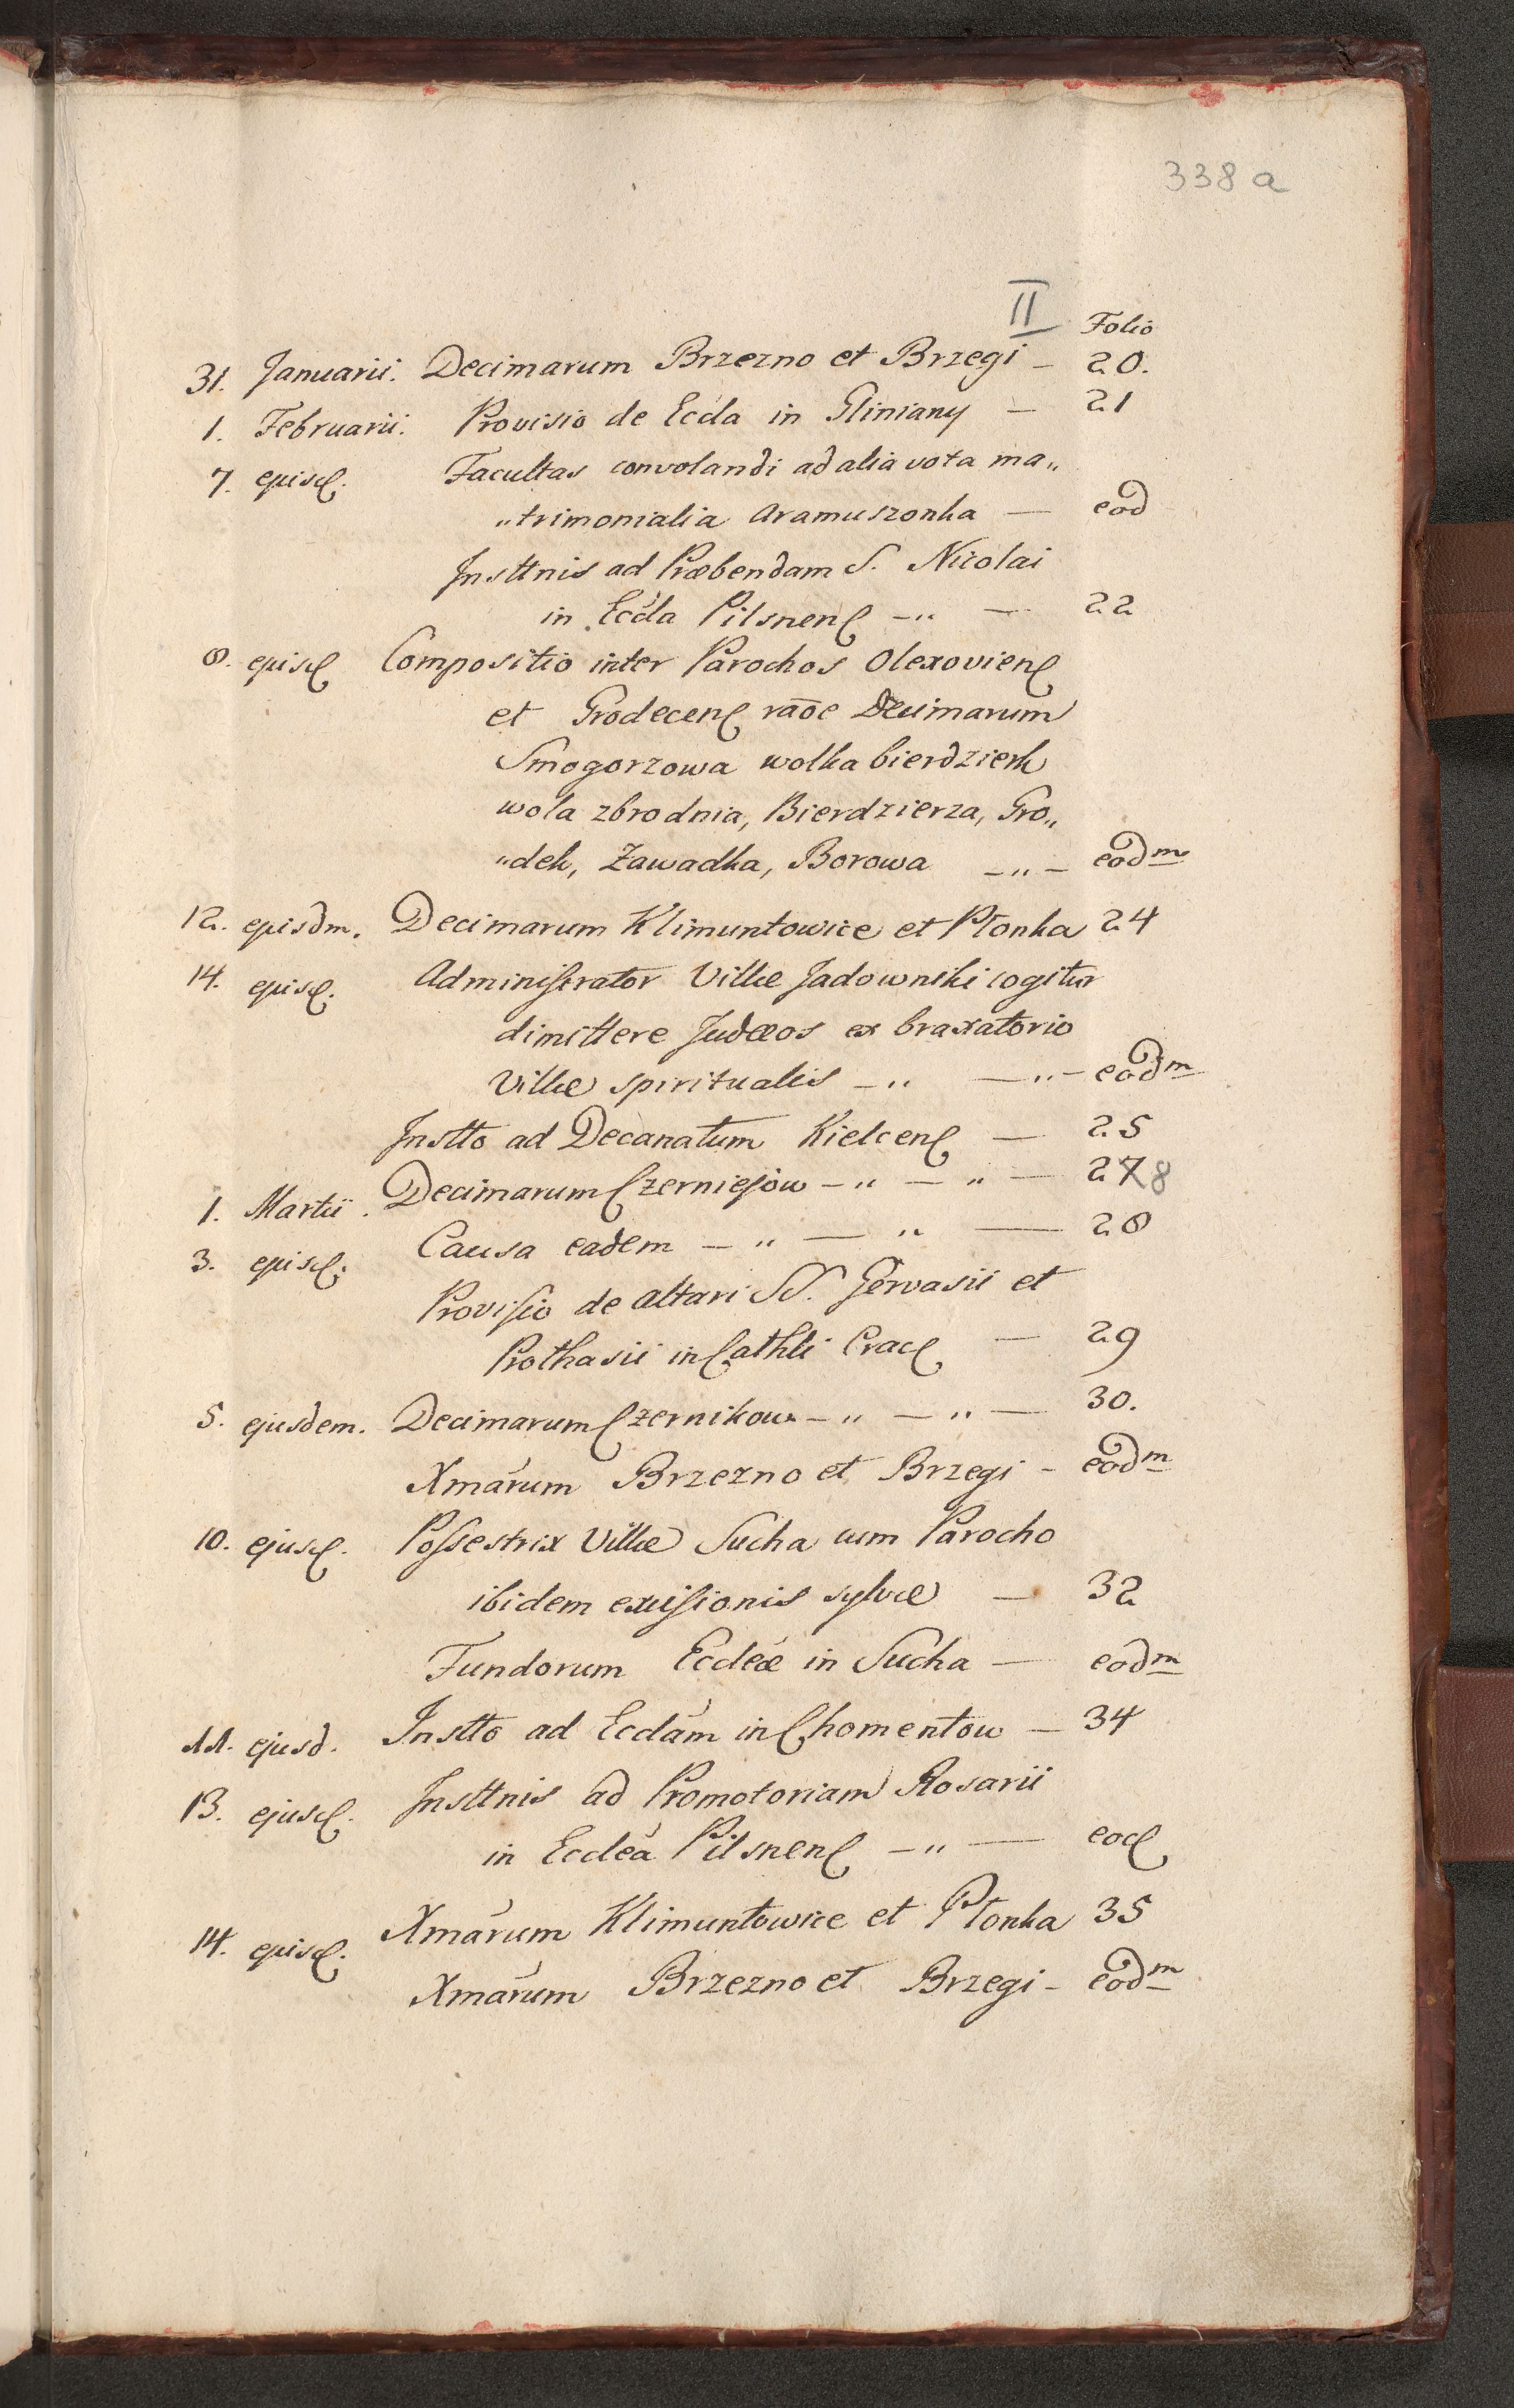 338 a
II
Folio
31. Januarii. Decimarum Brzezno et Brzegi - 20.
1. Februarii. Provisio de Ecćla in Gliniany — 21
7. ejusd. Facultas convolandi ad alia vota ma„
„trimonialia Aramuszonka — eod
Insttnis ad Præbendam S. Nicolai
in Ecćla Pilsnen -„ — 22
8. ejusd Compositio inter Parochos Olexovien
et Grodecen raõe Decimarum
Smogorzowa wolka bierdziesk
wola zbrodnia, Bierdzierza, Gro„
„dek, Zawadka, Borowa -„- eodm
12. ejusdm. Decimarum Klimuntowice et Płonka 24
14. ejusd. Administrator Villæ Jadowniki cogitur
dimittere Judæos ex braxatorio
Villæ spiritualis -„ —„- eodm
Instto ad Decanatum Kielcen — 25
1. Martii. Decimarum Czerniejow -„ -„ — 278
3. ejusd. Causa eadem -„ — „ — 28
Provisio de altari SS. Gervasii et
Prothasii in Cathli Crac — 29
5. ejusdem. Decimarum Czernikow -„ -„ — 30.
Xmárum Brzezno et Brzegi - eodm
10. ejusd. Possestrix Villæ Sucha cum Parocho
ibidem excisionis sylvæ — 32
Fundorum Eccleæ in Sucha — eodm
11. ejusd. Instto ad Ecclám in Chomentow — 34
13. ejusd. Insttnis ad Promotoriam Rosarii
in Eccleá Pilsnen -„ — eod
14. ejusd. Xmárum Klimuntowice et Płonka 35
Xmárum Brzezno et Brzegi - eodm